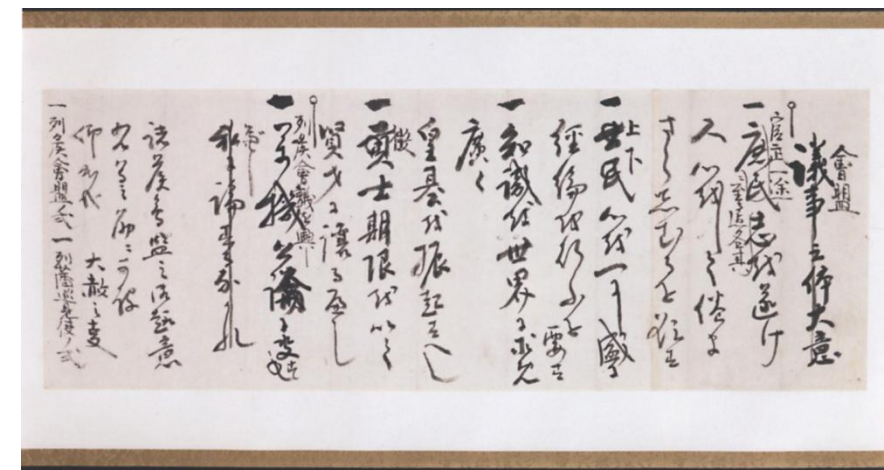 會盟
議事之体大意
官武一途
一庶民志を遂け
至迄各其
人心をして倦ま
さらしむるを欲す
上下
一士民心を一ニし盛ニ
経綸を行ふを要す
一知識を世界ニ求め
廣く
皇基を振起すへし
徴
一貢士期限を以て
賢才ニ譲るへし
列侯會議を興し
一万機公論ニ決し
私ニ論するなかれ
諸侯會盟之御趣意
右等之筋ニ可被
仰出哉 大赦之事
一列侯會盟ノ式 一列藩巡見使ノ式